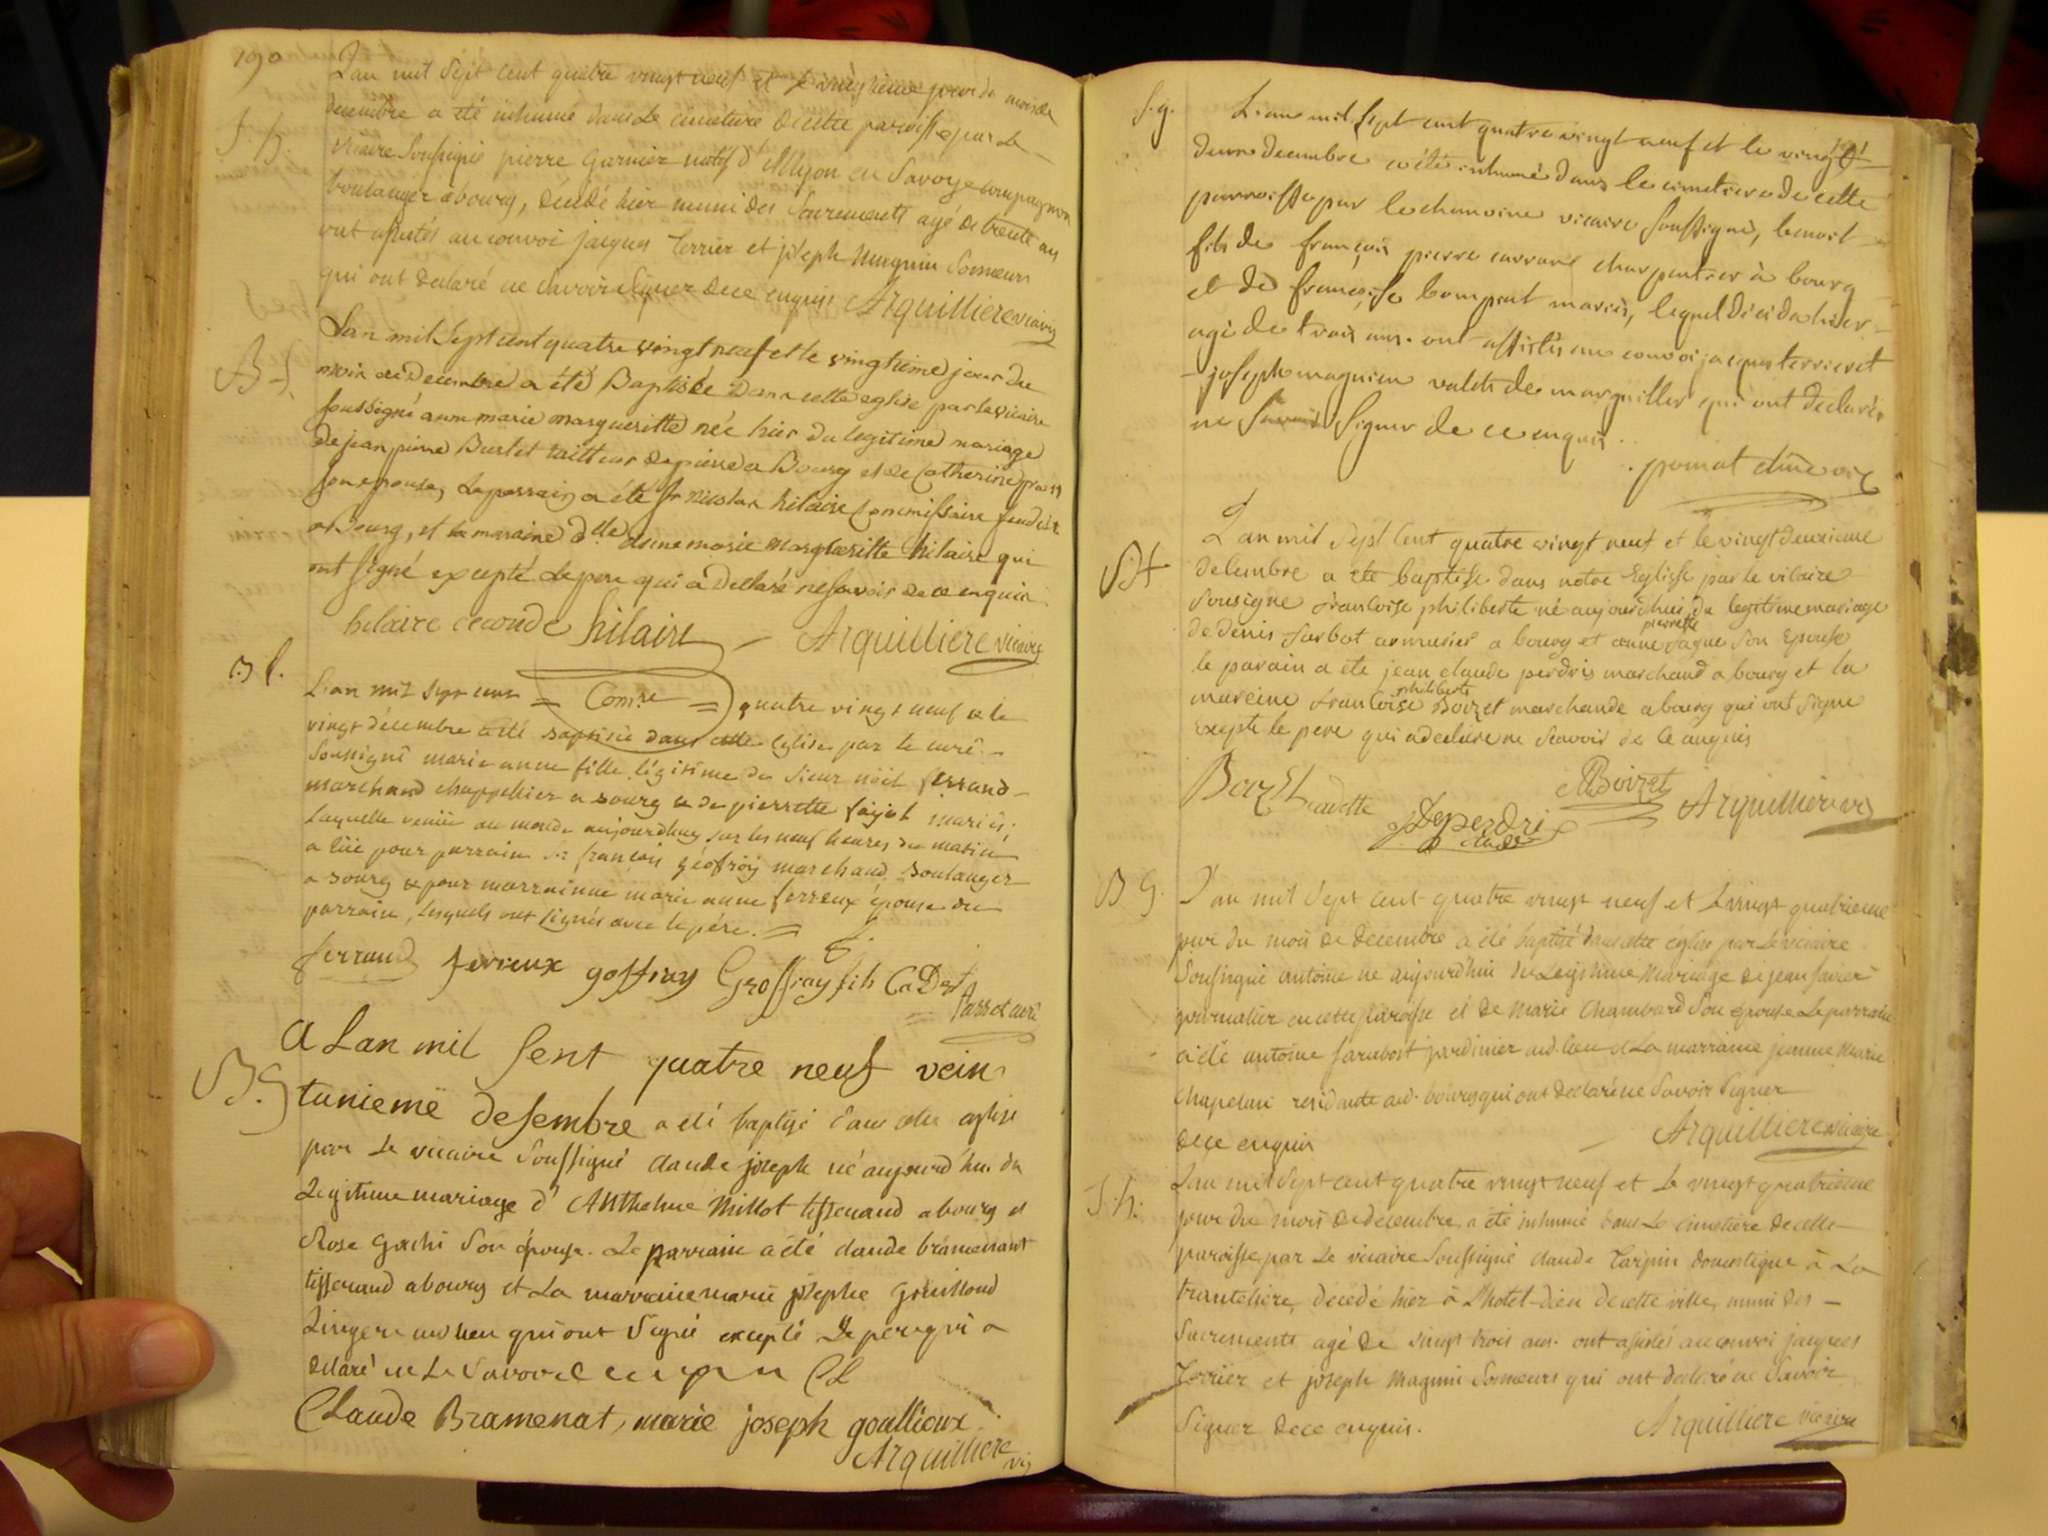 190
L'an mil sept cent quatre vingt neuf et le vingtieme jour du mois de
decembre a été inhumé dans Le cimetière de cette paroisse par Le
S. h.
vicaire soussigné pierre garnier natif d' en Savoye compagnon
boulanger a bourg, décédé hier muni des Sacrements agé de trente ans
ont assistés au convoi jacques terrier et joseph Sonneurs
qui ont declaré ne Savoir Signer de ce enquis Arquilliere vicaire
L'an mil Sept cent quatre vingt neuf et le vingtieme jour du
mois de Decembre a été Baptisée Dans cette eglise par le vicaire
soussigné anne marie margueritte née hier du legitime mariage
de jean pierre Burlet tailleur de pierre a Bourg et de Catherine
son epouse, Le parrain a été sr nicolas hilaire Commissaire feudiste
a Bourg, et la maraine dlle anne marie margueritte hilaire qui
ont signé excepté Le pere qui a Declaré ne savoir de ce enquis
hilaire hilaire Arquilliere vicaire
B. f.
L'an mil sept cent = Com.re = quatre vingt neuf et le
vingt décembre a été baptisée dans cette Eglise par le curé
soussigné marie anne fille légitime de Sieur noël ferrand
marchand chappellier a bourg et de pierrette mariés;
Laquelle venüe au monde aujourdhuy sur les neuf heures du matin
a eüe pour parrain Sr françois géoffroy marchand boulanger
a bourg et pour marrainne marie anne ferreux épouse du
parrain, lesquels ont signés avec le père. =
ferrand ferreux goffray Groffray fils CaDet
curé
a Lan mil sent quatre neuf vein
B. g
tunieme desembre a été baptisé dans cette eglise
par Le vicaire Soussigné claude joseph né aujourd'hui du
Legitime mariage d' Anthelme Millot tisserand a bourg et
Rose gachi Son épouse. Le parrain a été claude bramenant
tisserand a bourg et La marraine marie josephe gouilloud
Lingere au dit lieu qui ont Signé excepté Le pere qui a
declaré ne Le Savoir
Claude Bramenat, marie joseph goullioux
Arquilliere vic
S. g.
L'an mil sept cent quatre vingt neuf et le vingt
deux decembre a été inhumé dans le cimetiere de cette
parroisse par le chanoine vicaire soussigné, benoit
fils de françois pierre charpentier à bourg
et de françoise bompat mariés, lequel décéda hier
agé de trois ans. ont assistés au convoi jacques terrier et
joseph magnien valets de marguiller qui ont declarés
ne savoir Signer de ce enquis.
L'an mil Sept Cent quatre vingt neuf et le vingt deuxieme
decembre a ete baptise dans notre Eglise par le vicaire
Sousigné francoise philiberte né aujourdhui du legitime mariage
pierrette
de denis arbot armurier a bourg et anne Son Epouse
le parain a ete jean claude perdrix marchand a bourg et la
philiberte
mareine francoise Boizet marchande a bourg qui ont Signe
Exepte le pere qui a declare ne Scavoir de ce anquis
Boizet cadette Deperdri Boizet Arquilliere vic
claude
B g.
L'an mil Sept cent quatre vingt neuf et Le vingt quatrieme
jour du mois de decembre a été baptisé dans cette église par Le vicaire
Soussigné antoine né aujourd'hui du Legitime Mariage de jean favier
journalier en cette paroisse et de Marie Chambard Son épouse Le parrain
a été antoine jardinier aud. lieu et La marraine jeanne Marie
chapelan residante aud. bourg qui ont declaré ne Savoir Signer
de ce enquis Arquilliere vicaire
S. h.
L'an mil Sept cent quatre vingt neuf et Le vingt quatrieme
jour du mois de decembre, a été inhumé dans Le cimetière de cette
paroisse par Le vicaire Soussigné claude Carjun domestique à La
franteliere, décédé hier à L'hotel-dieu de cette ville, muni des
Sacrements agé de vingt trois ans. ont assistés au convoi jacques
Terrier et joseph magnin Sonneurs qui ont declaré ne Savoir
Signer de ce enquis. Arquilliere vicaire